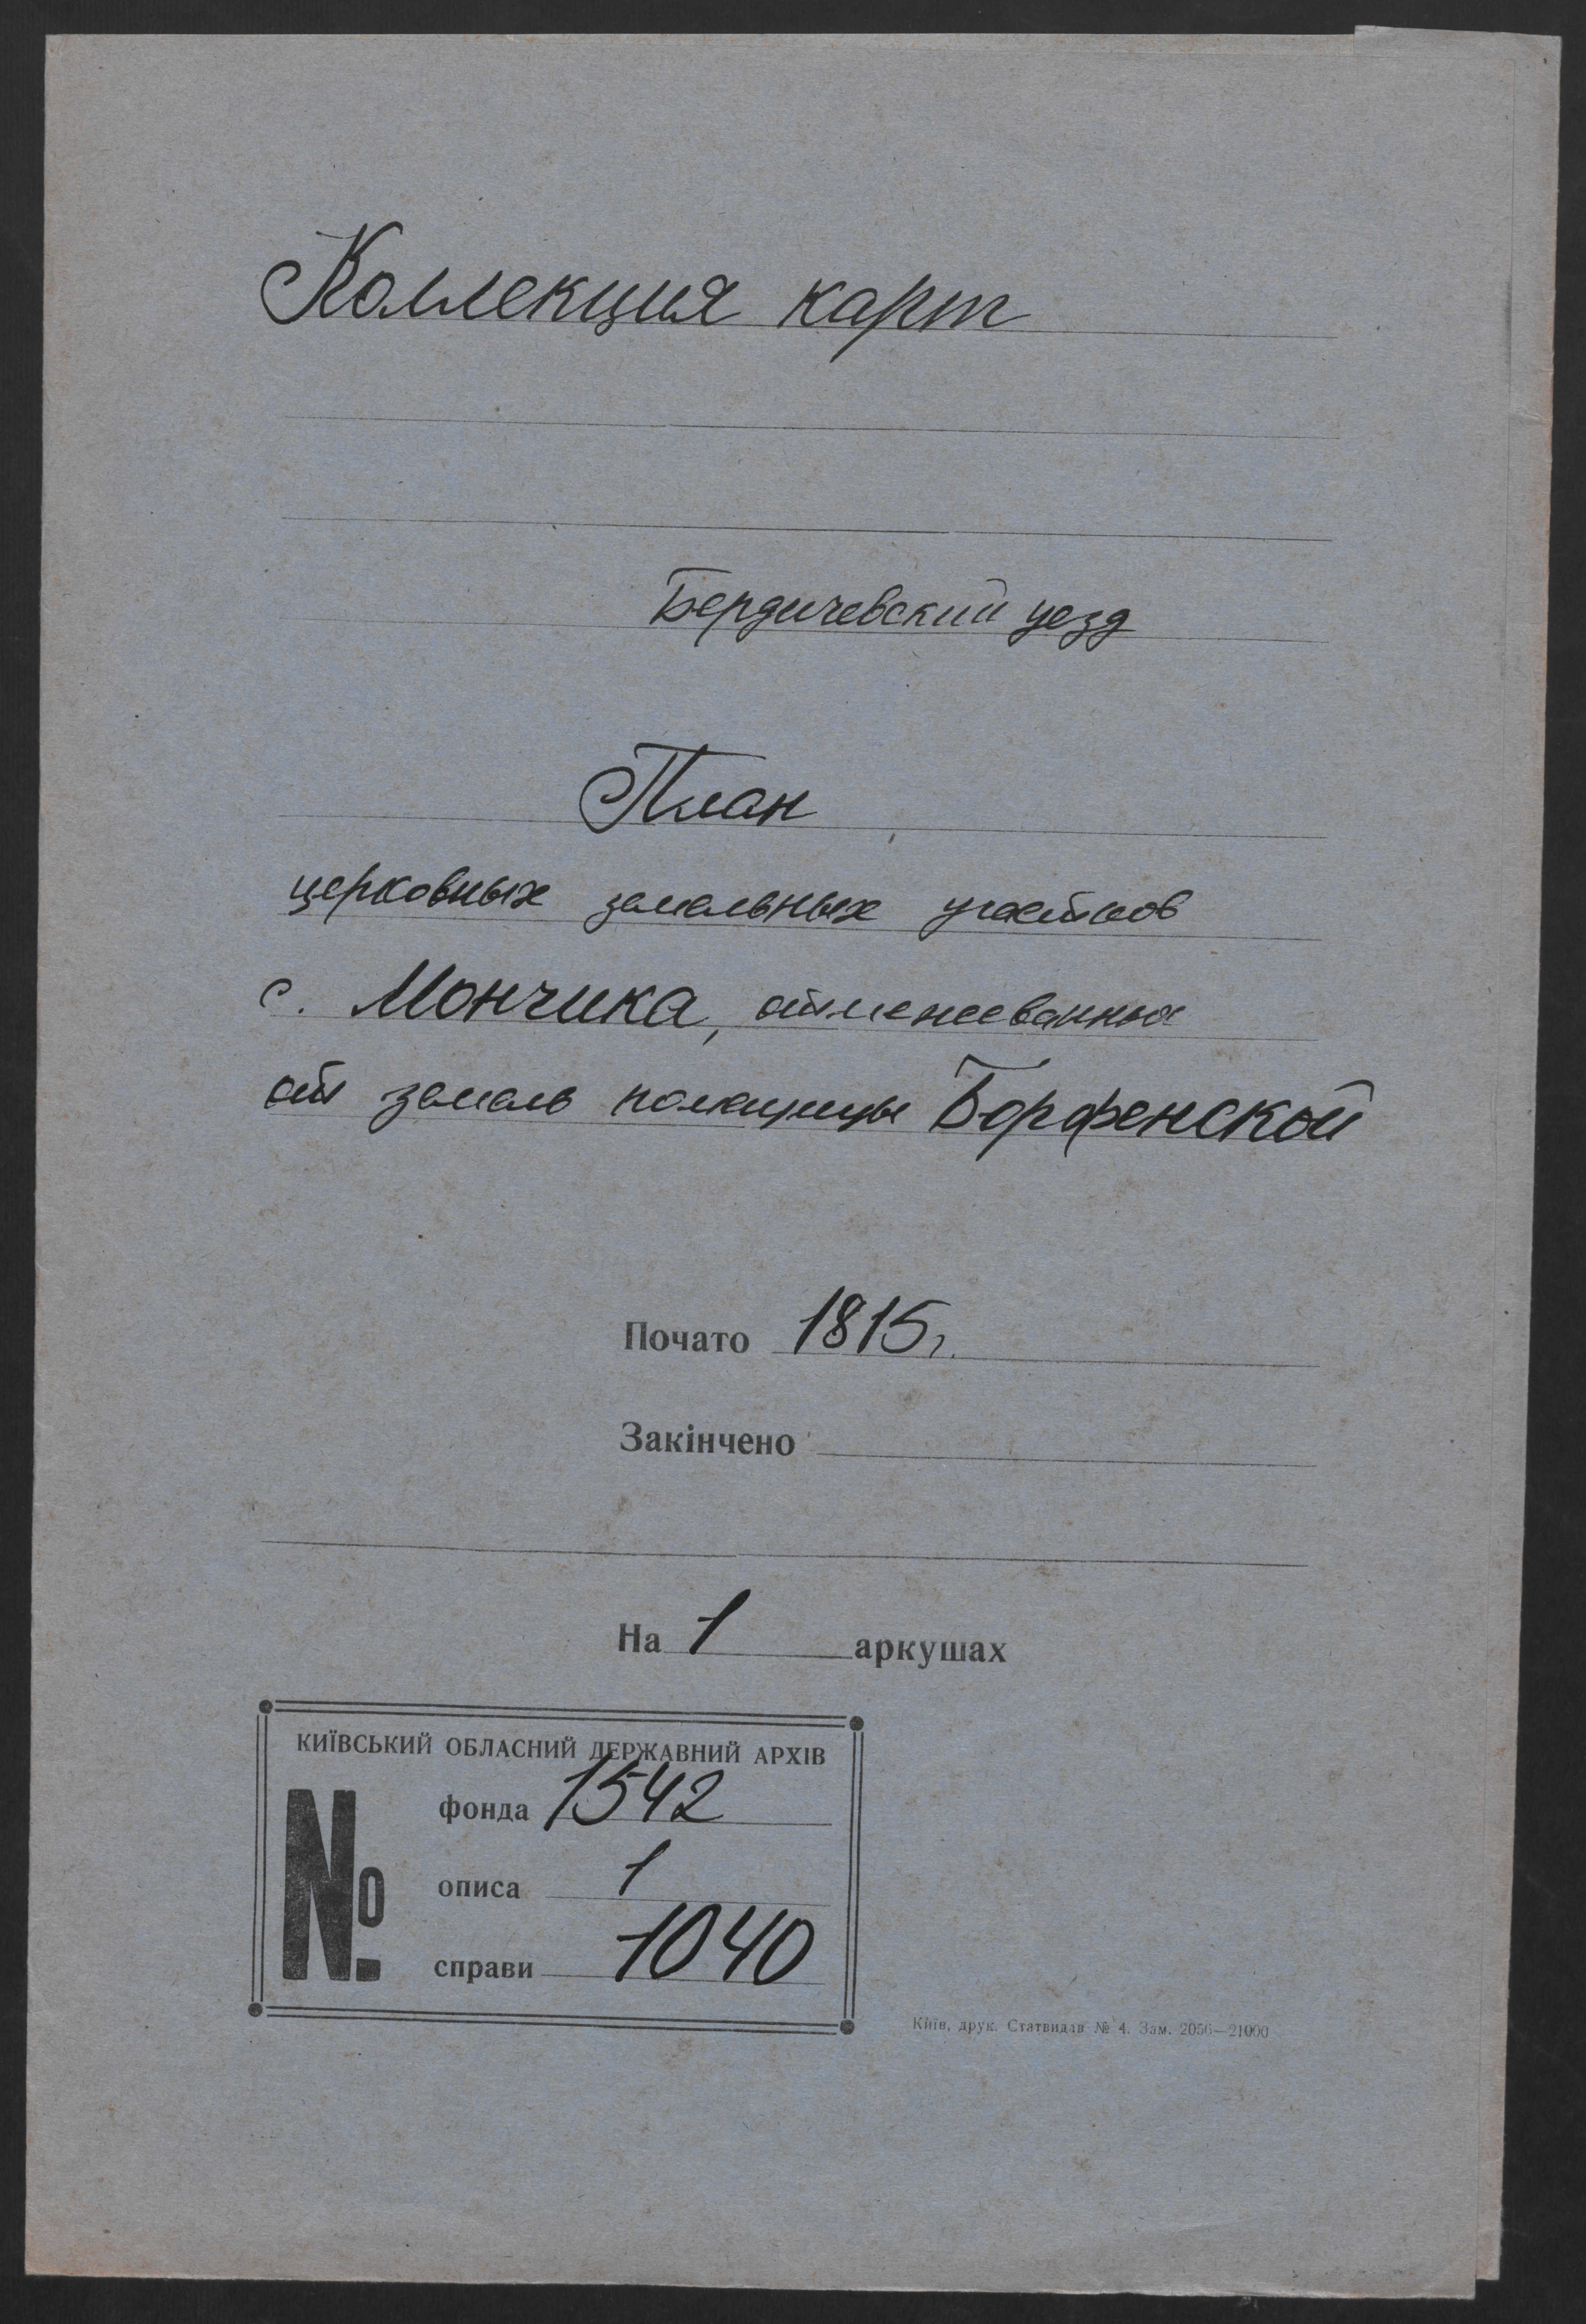 Коллекция карт
Бердичевский уезд
План
церковных земельных участков
с. Мончика, отмежеванных
от земель помещицы Борфенской
Почато 1815 г.
Закінчено
На 1 аркушах
КИЇВСЬКИЙ ОБЛАСНИЙ ДЕРЖАВНИЙ АРХІВ
№
фонда 1542
описа 1
справи 1040
Київ, друк. Статвидав № 4. Зам. 2056—21000